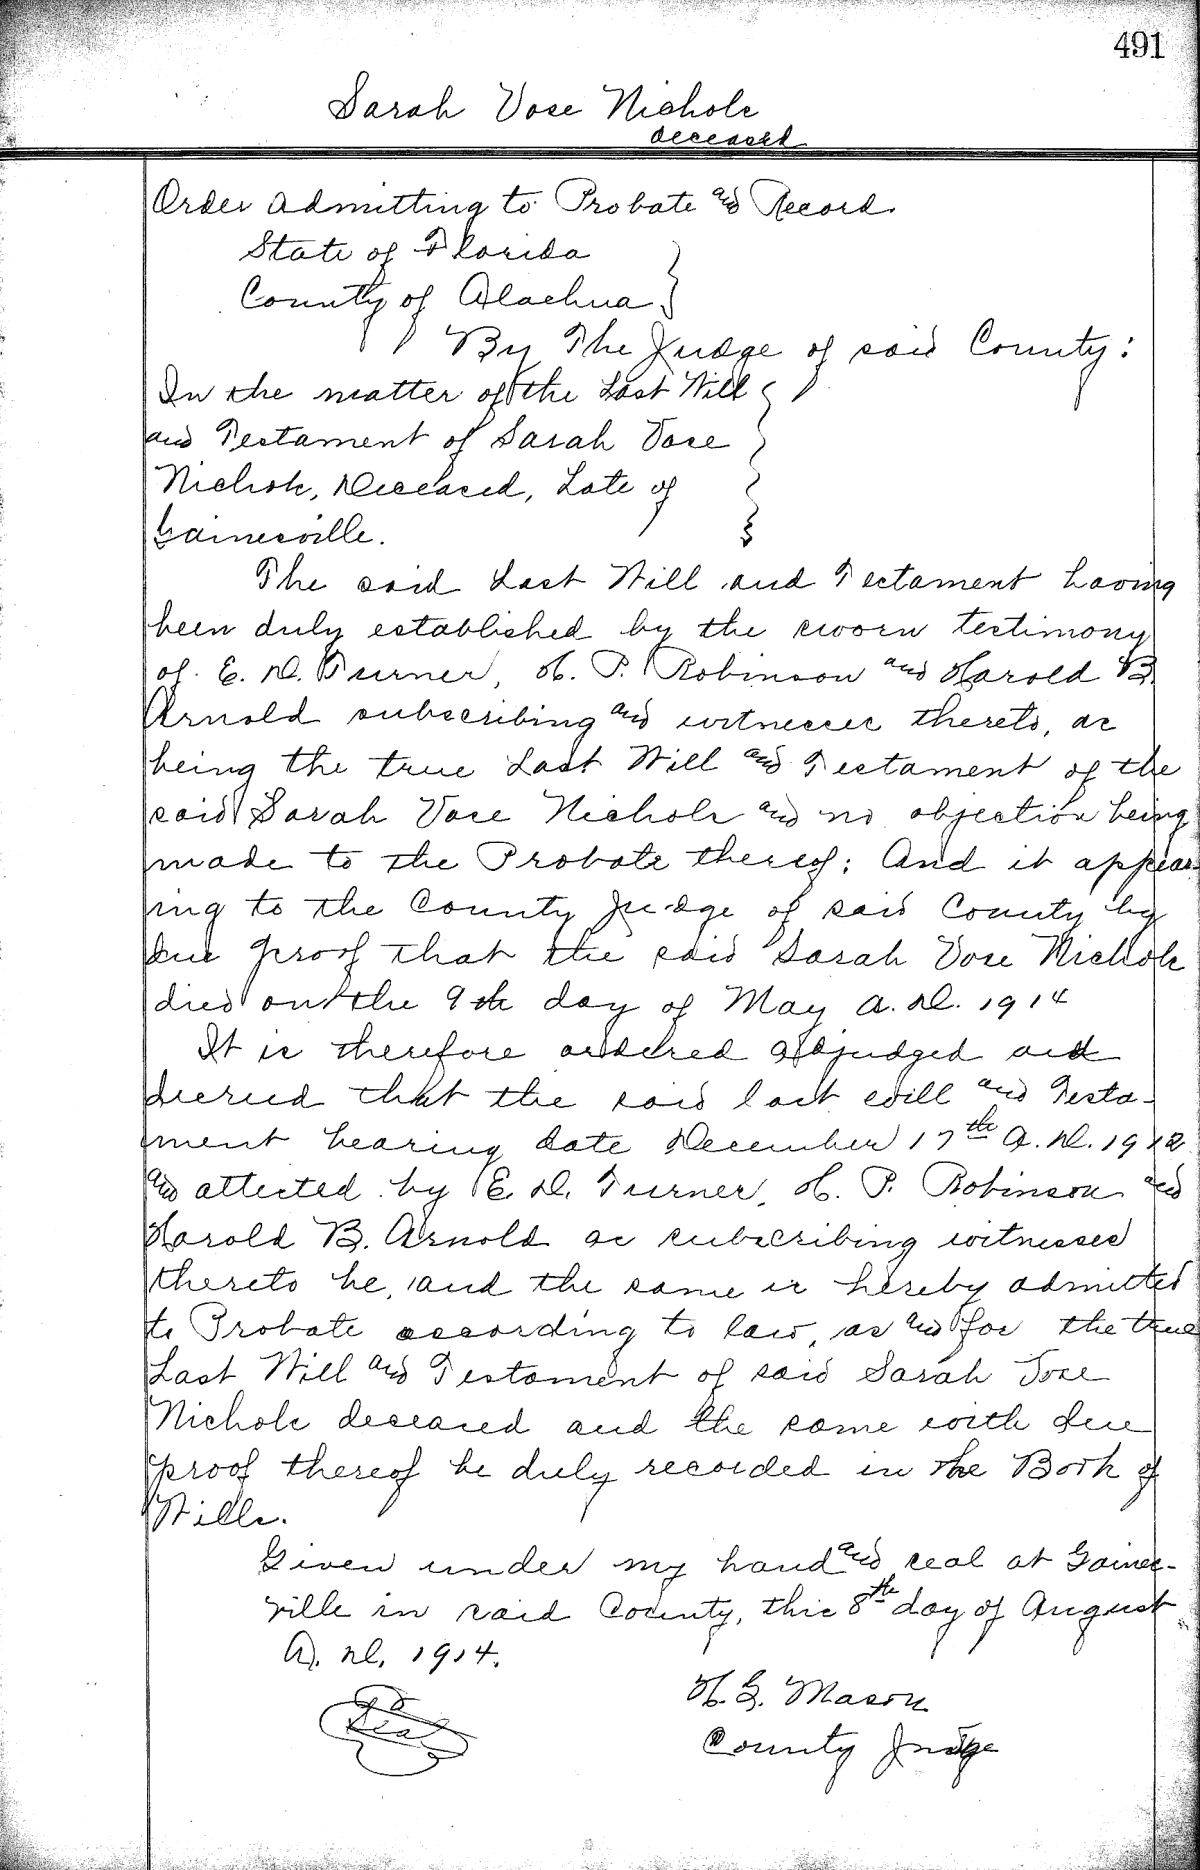 491
Sarah Vose Nichols
deceased
Order admitting to Probate and Record.
State of Florida
County of Alachua
By The Judge of said County:
In the matter of the Last Will
and Testament of Sarah Vose
Nichols, Deceased, Late of
Gainesville.
The said Last Will and Testament having
been duly established by the sworn testimony
of E. D. Turner, H. P. Robinson and Harold B.
Arnold subscribing and witnesses thereto, as
being the true Last Will and Testament of the
said Sarah Vose Nichols and no objection being
made to the Probate thereof: And it appear
ing to the County Judge of said County by
due proof that the said Sarah Vose Nichols
died on the 9th day of May A.D. 1914
It is therefore ordered adjudged and
decreed that the said last will and Testa-
ment bearing date December 17th A.D. 1912
and attested by E. D. Turner, H. P. Robinson and
Harold B. Arnold as subscribing witnesses
thereto be, and the same is hereby admitted
to Probate according to law, as and for the true
Last Will and Testament of said Sarah Vose
Nichols deceased and the same with due
proof thereof be duly recorded in the Book of
Wills.
Given under my hand and seal at Gaines-
ville in said County, this 8th day of August
A. D. 1914.
H. G. Mason
Seal
County Judge